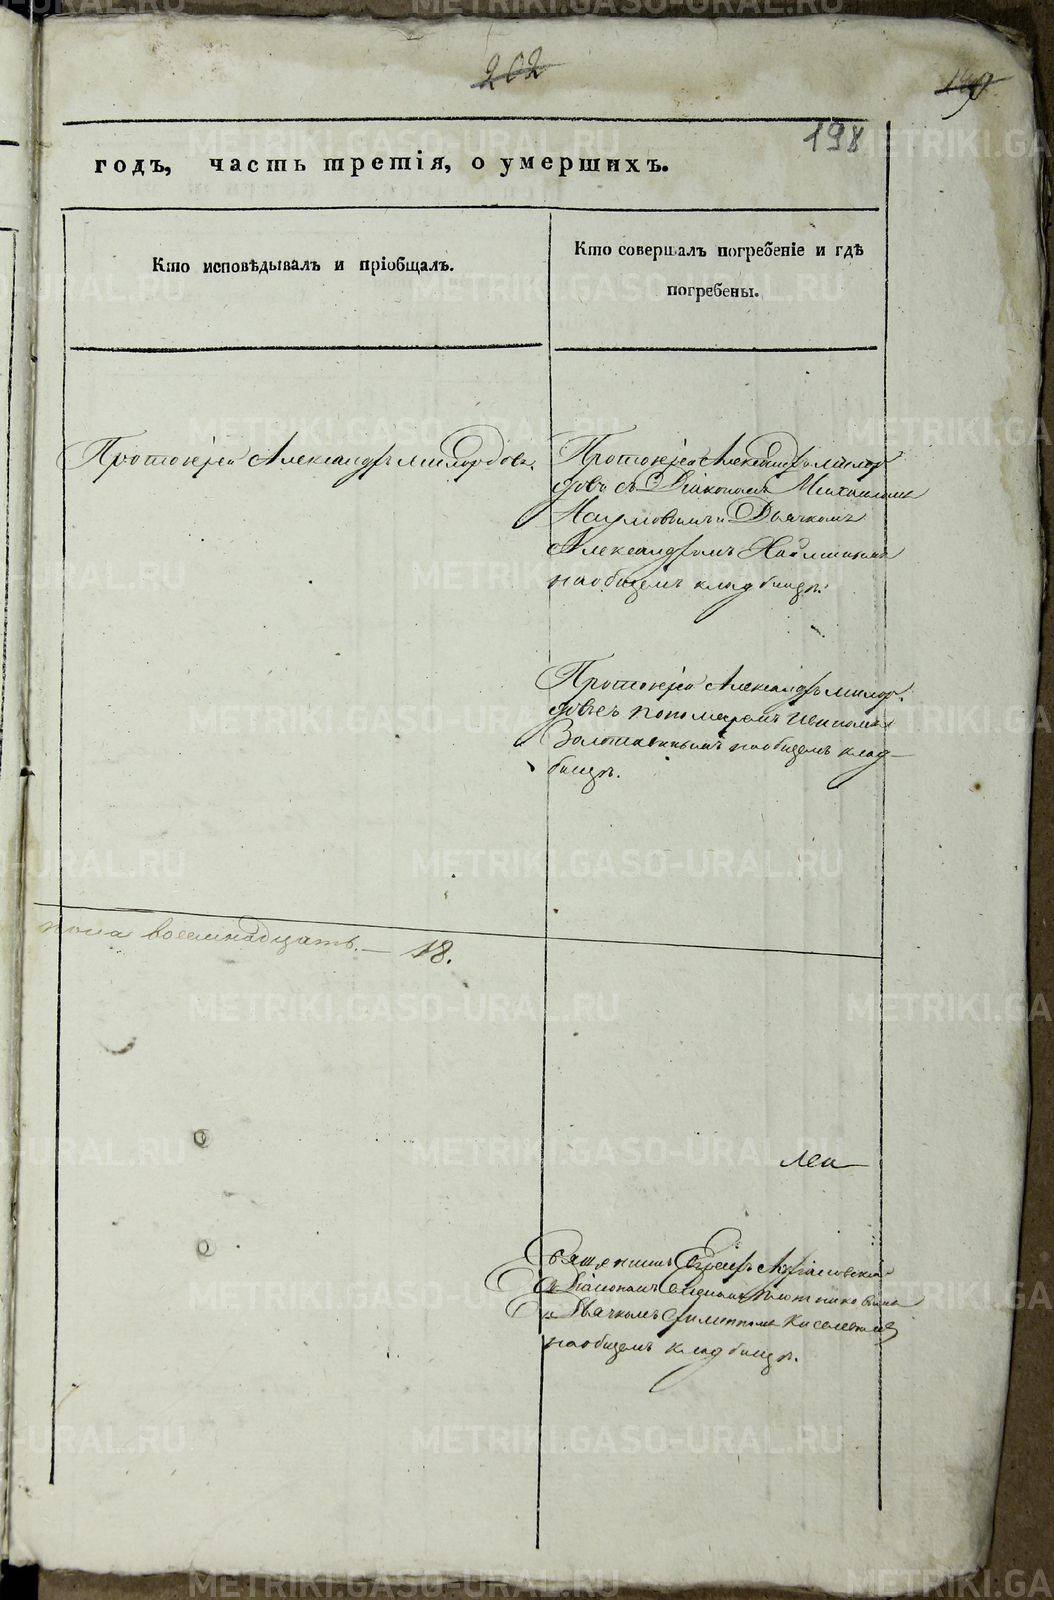 202
198
годъ, часть третія, о умершихъ.
Кто исповѣдывалъ и пріобщалъ.
Кто совершалъ погребеніе и гдѣ
погребены.
Протоіерей Александръ Милордовъ.
Протоіерей Александръ Милор
довъ съ Діакономъ Михаиломъ
Наумовымъ и Дьячкомъ
Александромъ
на общемъ кладбищѣ.
Протоіерей Александръ Милор
довъ съ пономаремъ Иваномъ
на общемъ клад
бищѣ.
пола восемнадцать. — 18.
Священникъ
съ Діакономъ Плотниковымъ
и Дьячкомъ Филиппомъ Киселевымъ
на общемъ кладбищѣ.
METRIKI.GASO-URAL.RU